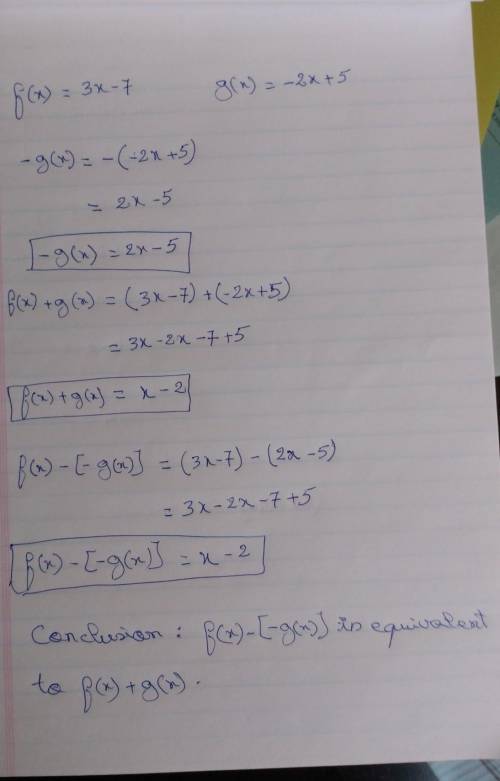 f(x) = 3x-7 g(x) = -2x+5
-g(x) = -(-2x+5)
= 2x-5
-g(x) = 2x-5
f(x)+g(x) = (3x-7)+(-2x+5)
= 3x-2x-7+5
f(x)+g(x) = x-2
f(x)-[-g(x)] = (3x-7)-(2x-5)
= 3x-2x-7+5
f(x)-[-g(x)] = x-2
Conclusion : f(x)-[-g(x)] is equivalent
to f(x)+g(x).